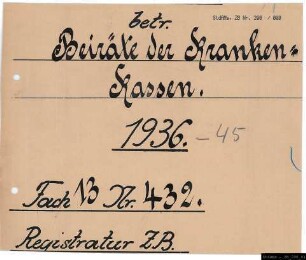 betr.
Beiräte der Kranken=
kassen.
1936. - 45
Fach 13 Nr. 432.
Registratur Z.B.